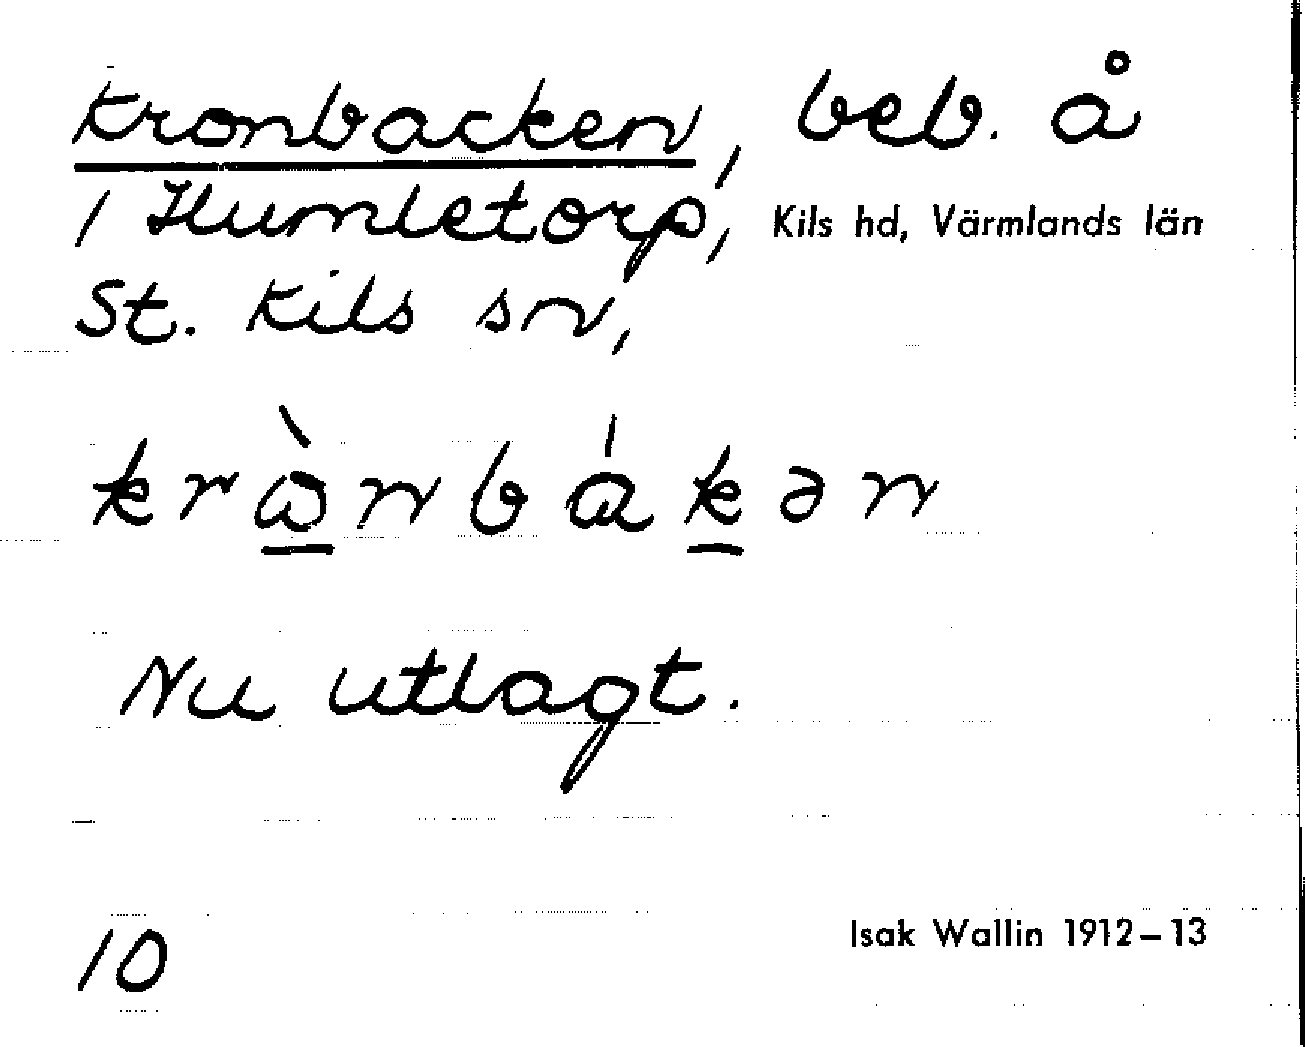 Kronbacken, beb. å
1 Humletorp, Kils hd, Värmlands län
St. Kils sn,
krὼnbákən
Nu utlagt.
10
Isak Wallin 1912–13